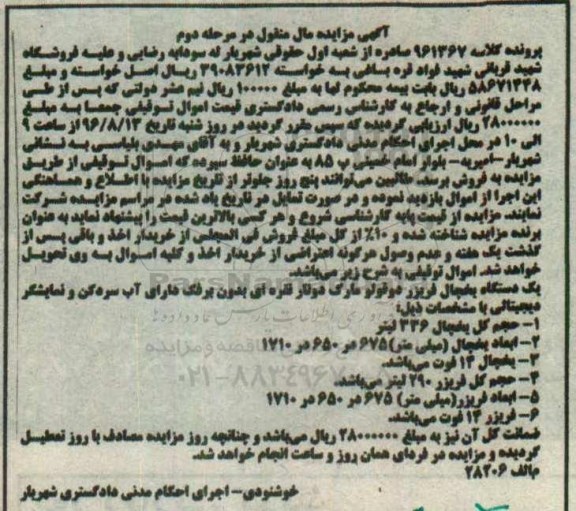 آگهی مزایده مال منقول در مرحله دوم
پرونده کلاسه ۹۶۱۳۶۷ صادره از شعبه اول حقوقی شهریار له سودابه رضایی و علیه فروشگاه
شهید قربانی شهید فواد قره بساغی به خواسته ۳۹۰۸۳۶۱۲ ریال اصل خواسته و مبلغ
۵۸۶۷۱۳۴۸ ریال بابت بیمه محکوم لها به مبلغ ۱۰۰۰۰۰ ریال نیم عشر دولتی که پس از طی
مراحل قانونی و ارجاع به کارشناس رسمی دادگستری قیمت اموال توقیفی جمعا به مبلغ
۲۸۰۰۰۰۰۰ ریال ارزیابی گردیده که سپس مقرر گردید در روز شنبه تاریخ ۹۶/۸/۱۳ از ساعت ۹
الی ۱۰ در محل اجرای احکام مدنی دادگستری شهریار و به آقای مهدی بلباسی به نشانی
شهریار -امیریه- بلوار امام خمینی پ ۸۵ به عنوان حافظ سپرده که اموال توقیفی از طریق
مزایده به فروش برسد. طالبین می‌توانند پنج روز جلوتر از تاریخ مزایده با اطلاع و هماهنگی
این اجرا از اموال بازدید نموده و در صورت تمایل در تاریخ یاد شده در مراسم مزایده شرکت
نمایند. مزایده از قیمت پایه کارشناسی شروع و هر کسی بالاترین قیمت را پیشنهاد نماید به عنوان
برنده مزایده شناخته شده و ۱۰٪ از کل مبلغ فروش فی المجلس از خریدار اخذ و باقی پس از
گذشت یک هفته و عدم وصول هرگونه اعتراضی از خریدار اخذ و کلیه اموال به وی تحویل
خواهد شد. اموال توقیفی به شرح زیر می‌باشد.
یک دستگاه یخچال فریزر دوقولو مارک دونار نقره ای بدون برفک دارای آب سردکن و نمایشگر
دیجیتالی با مشخصات ذیل:
۱- حجم کل یخچال ۳۳۶ لیتر
۲- ابعاد یخچال (میلی متر) ۶۷۵ در ۶۵۰ در ۱۷۱۰
۳- یخچال ۱۴ فوت می‌باشد.
۴- حجم کل فریزر ۲۹۰ لیتر می‌باشد.
۵- ابعاد فریزر (میلی متر) ۶۷۵ در ۶۵۰ در ۱۷۱۰
۶- فریزر ۱۴ فوت می‌باشد.
ضمانت کل آن نیز به مبلغ ۲۸۰۰۰۰۰۰ ریال می‌باشد و چنانچه روز مزایده مصادف با روز تعطیل
گردیده و مزایده در فردای همان روز و ساعت انجام خواهد شد.
م‌الف ۲۸۲۰۶
خوشنودی- اجرای احکام مدنی دادگستری شهریار
۰۲۱-۸۸۳۴۹۶۷۰